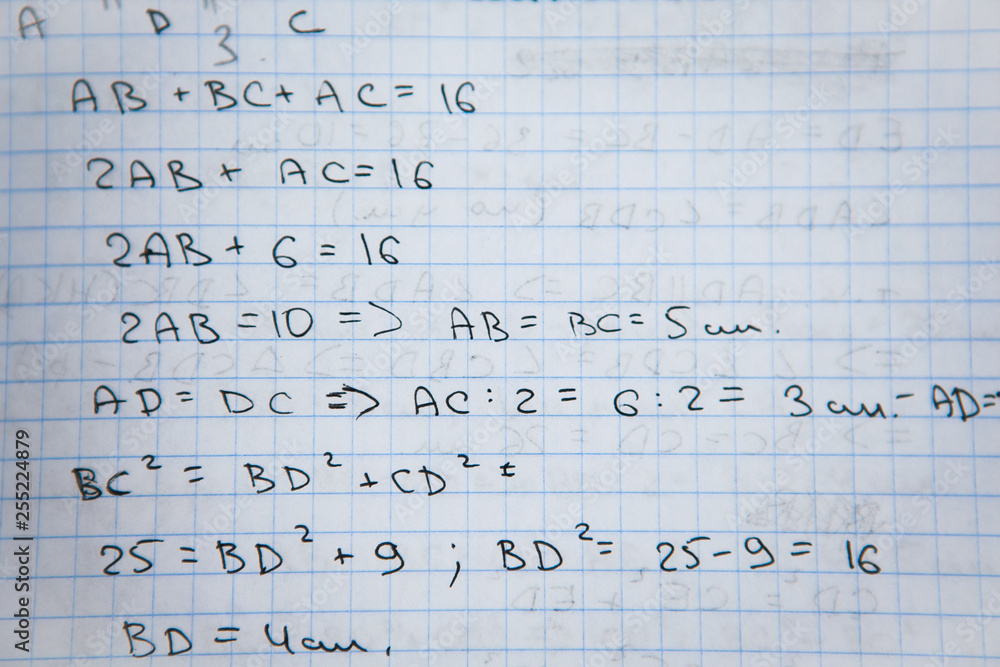 A " D " C
3.
AB + BC + AC = 16
2AB + AC = 16
2AB + 6 = 16
2AB = 10 => AB = BC = 5 см.
AD = DC => AC : 2 = 6 : 2 = 3 см. - AD =
BC² = BD² + CD² =
25 = BD² + 9 ; BD² = 25 - 9 = 16
BD = 4 см.
Adobe Stock | #255224879